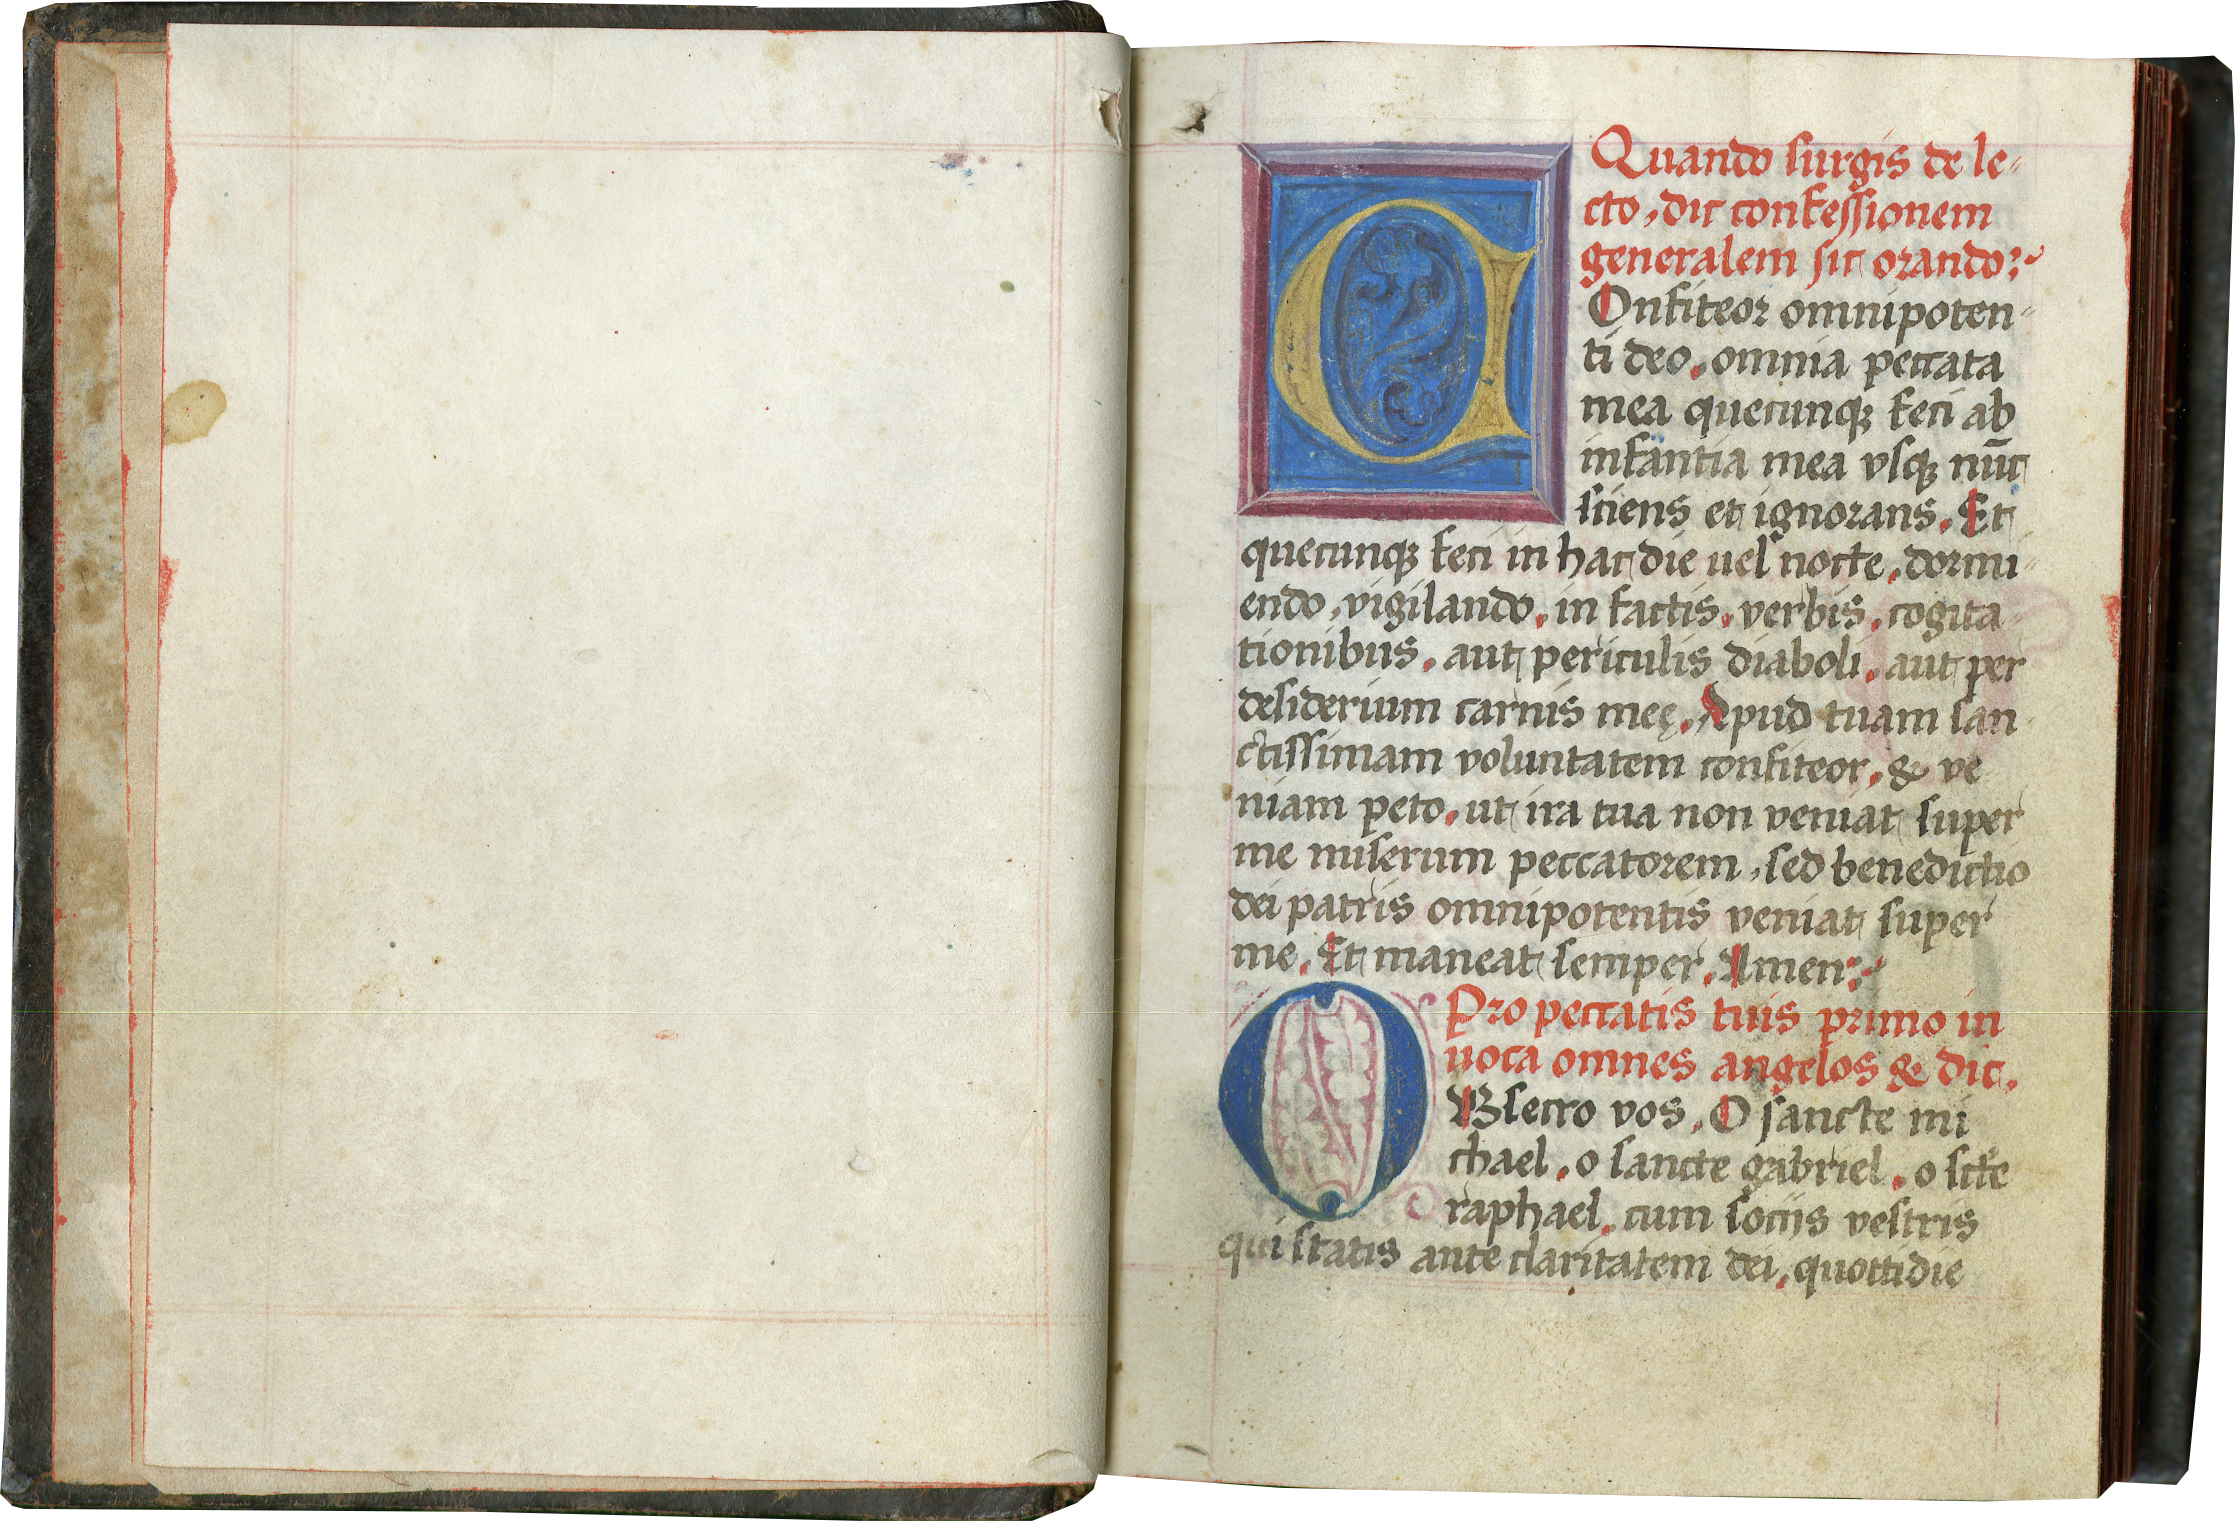 Quando surgis de le-
cto, dic confessionem
generalem sic orando:
COnfiteor omnipoten-
ti deo, omnia peccata
mea quecunqꝫ feci ab
infantia mea vsqꝫ nūc
sciens et ignorans. Et
quecunqꝫ feci in hac die uel nocte, dormi-
endo, vigilando, in factis, verbis, cogita-
tionibus, aut periculis diaboli, aut per
desiderium carnis meę. Apud tuam san-
ctissimam voluntatem confiteor, & ve
niam peto, ut ira tua non veniat super
me miserum peccatorem, sed benedictio
dei patris omnipotentis veniat super
me. Et maneat semper. Amen:
Pro peccatis tuis primo in
uoca omnes angelos & dic.
OBsecro vos, O sancte mi
chael, o sancte gabriel, o scte
raphael, cum socijs vestris
qui statis ante claritatem dei, quottidie